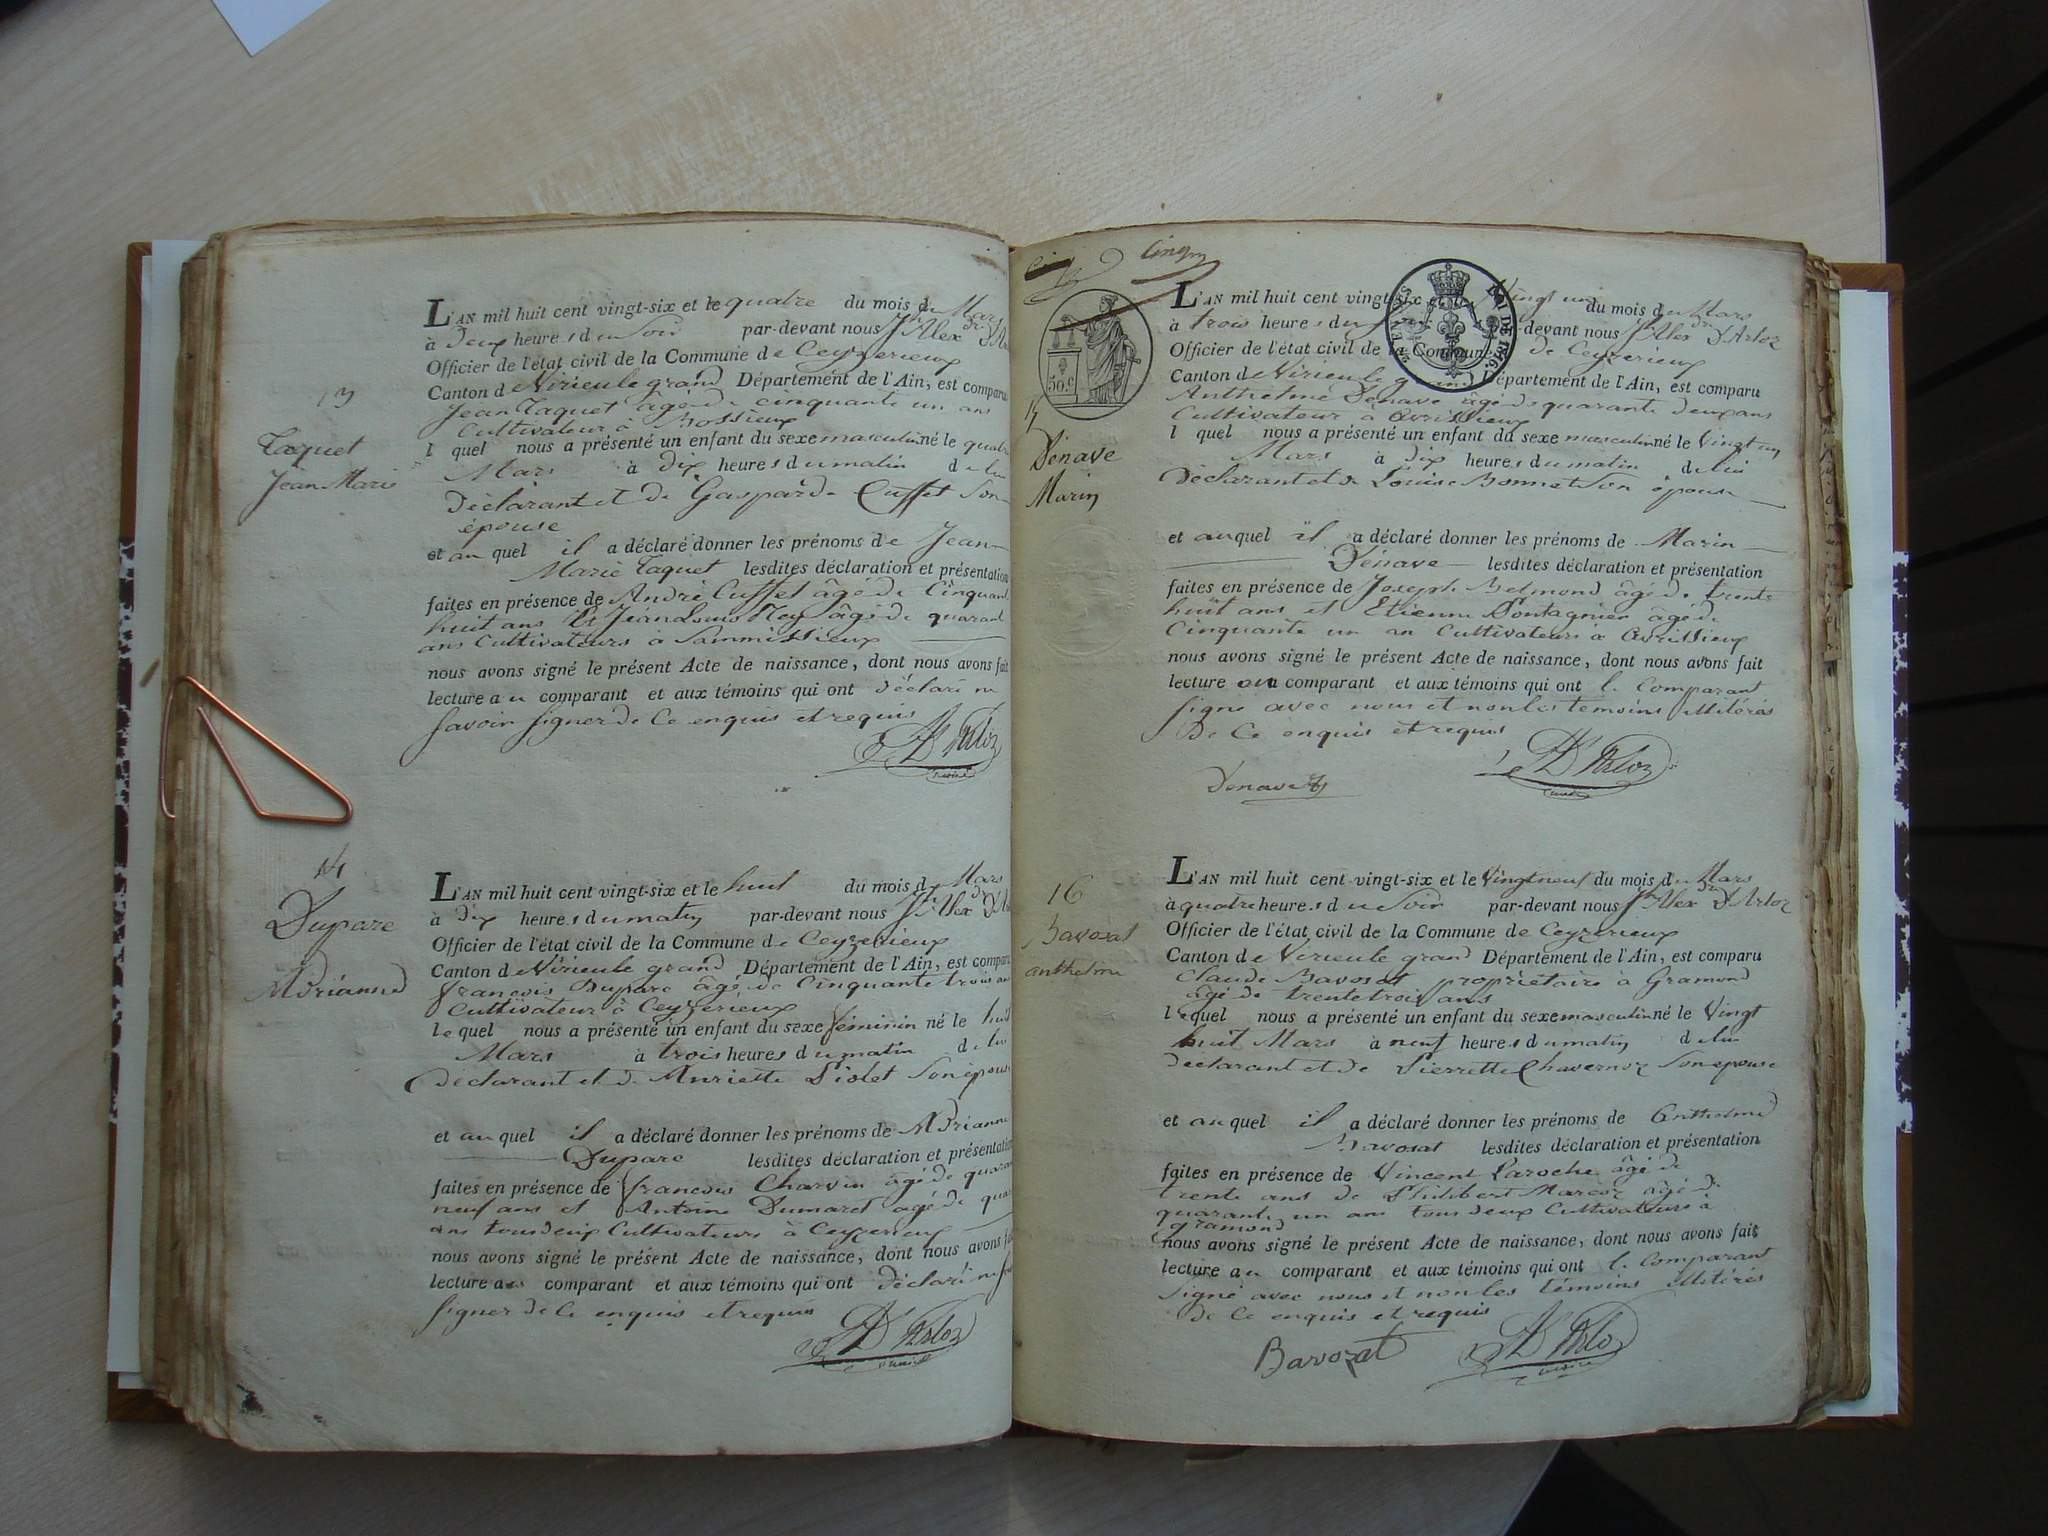 13
Taquet
Jean Marie
L'AN mil huit cent vingt-six et le quatre du mois de Mars
à Deux heures du Soir par-devant nous Jh Alex dre
Officier de l'état civil de la Commune de Ceyzerieux
Canton de Virieu le grand Département de l'Ain, est comparu
Jean Taquet âgé de cinquante un ans
Cultivateur à
l quel nous a présenté un enfant du sexe masculin né le quatre
Mars à dix heures du matin de lui
Déclarant et de Gasparde Cuffet Son
épouse
et au quel il a déclaré donner les prénoms de Jean
Marie Taquet lesdites déclaration et présentation
faites en présence de André Cuffet âgé de Cinquante
huit ans et Jean Louis Ney âgé de quarante
ans Cultivateurs à Sammissieux
nous avons signé le présent Acte de naissance, dont nous avons fait
lecture au comparant et aux témoins qui ont déclaré ne
Savoir signer de Ce enquis et requis
D'Arloz
14
Duparc
Adrianne
L'AN mil huit cent vingt-six et le huit du mois de Mars
à dix heures du matin par-devant nous Jh Alex dre
Officier de l'état civil de la Commune de Ceyzerieux
Canton de Virieu le grand Département de l'Ain, est comparu
françois Duparc âgé de Cinquante trois ans
Cultivateur à Ceyzerieux
le quel nous a présenté un enfant du sexe féminin né le huit
Mars à trois heures du matin de lui
déclarant et de Mariette Piolet Son épouse
et au quel il a déclaré donner les prénoms de Adrianne
Duparc lesdites déclaration et présentation
faites en présence de françois Charvin âgé de quarante
neuf ans et Antoine Dumaret âgé de quarante
ans tous deux Cultivateurs à Ceyzerieux
nous avons signé le présent Acte de naissance, dont nous avons fait
lecture au comparant et aux témoins qui ont déclaré ne
signer de Ce enquis et requis
D'Arloz
50.c
LOI DE 1816.
15
Dénave
Marin
L'AN mil huit cent vingt-six et le Vingt un du mois de Mars
à trois heures du par-devant nous Jh Alex dre D'Arloz
Officier de l'état civil de la Commune de Ceyzerieux
Canton de Virieu le grand Département de l'Ain, est comparu
Anthelme Dénave âgé de quarante deux ans
Cultivateur à Avrissieux
l quel nous a présenté un enfant du sexe masculin né le Vingt un
Mars à dix heures du matin de lui
Déclarant et de Louise Bonnet Son épouse
et au quel il a déclaré donner les prénoms de Marin
Dénave lesdites déclaration et présentation
faites en présence de Joseph Belmond âgé de trente
huit ans et Etienne Pontagnier âgé de
Cinquante un an Cultivateurs à Avrissieux
nous avons signé le présent Acte de naissance, dont nous avons fait
lecture au comparant et aux témoins qui ont le Comparant
signé avec nous et non les témoins illitérés
De Ce enquis et requis
Denave
D'Arloz
16
Bavosat
anthelme
L'AN mil huit cent vingt-six et le Vingt neuf du mois de Mars
à quatre heures du Soir par-devant nous Jh Alex dre D'Arloz
Officier de l'état civil de la Commune de Ceyzerieux
Canton de Virieu le grand Département de l'Ain, est comparu
Claude Bavosat propriétaire à Gramond
âgé de trente trois ans
l equel nous a présenté un enfant du sexe masculin né le Vingt
huit Mars à neuf heures du matin de lui
déclarant et de Pierrette Chavernoz Son épouse
et au quel il a déclaré donner les prénoms de Anthelme
Bavosat lesdites déclaration et présentation
faites en présence de Vincent Laroche âgé de
trente ans de Philibert Marcoz âgé de
quarante un ans tous deux Cultivateurs à
gramond
nous avons signé le présent Acte de naissance, dont nous avons fait
lecture au comparant et aux témoins qui ont le Comparant
Signé avec nous et non les témoins illitérés
de Ce enquis et requis
Bavozat
D'Arloz